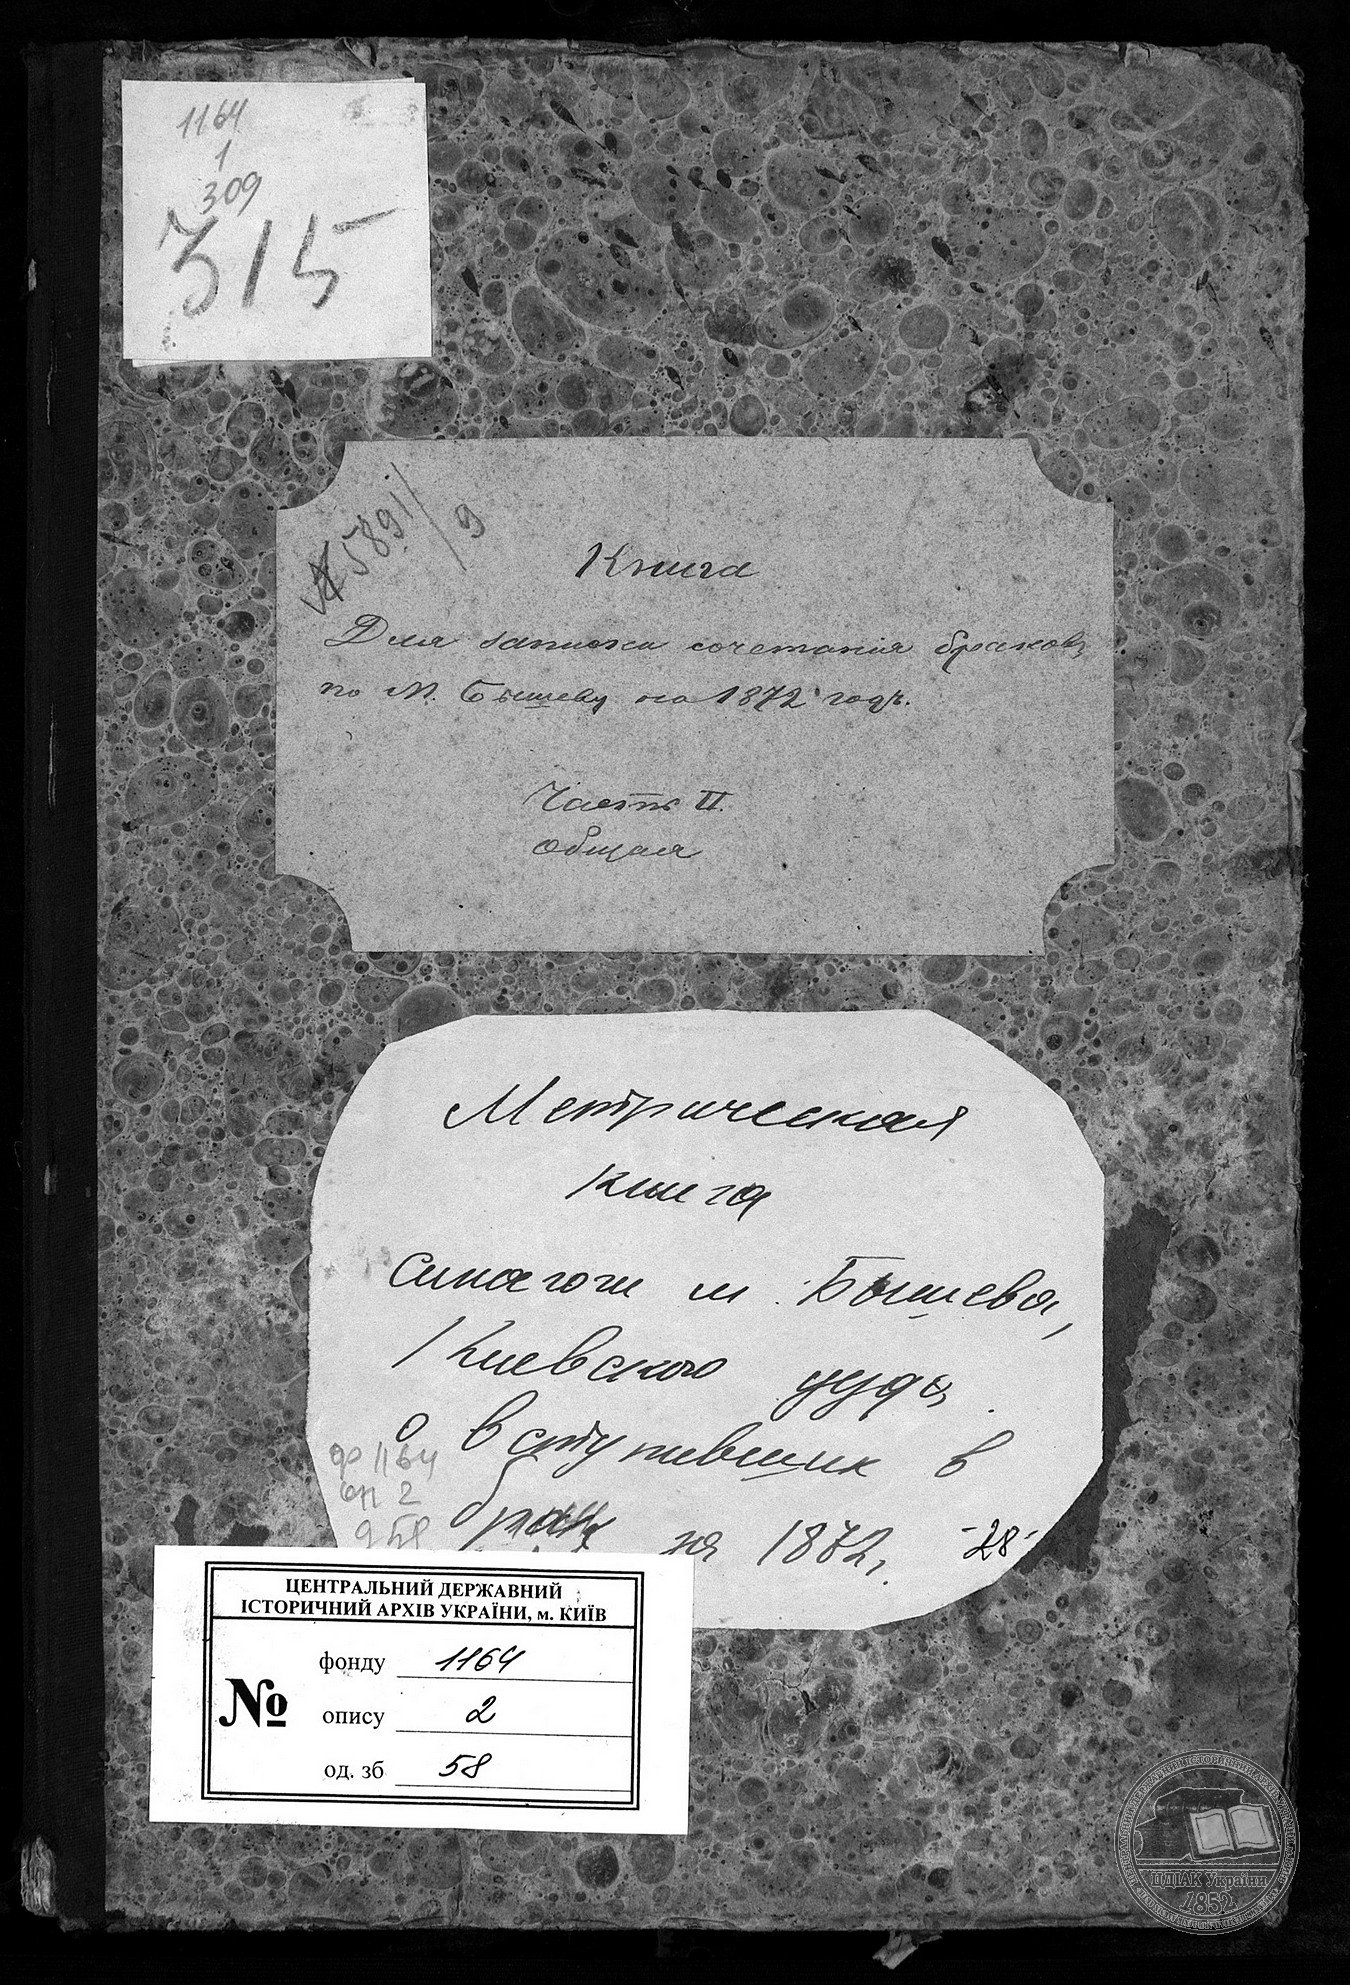 1164
1
309
315
5891/9
Книга
Для записки сочетанія браковъ
по м. Бышеву на 1872 годъ.
Часть II.
общая
Метрическая
книга
синагоги м. Бышева,
Киевского уезда
о вступивших в
брак за 1872 г.
-28-
ф 1164
оп 2
д 58
ЦЕНТРАЛЬНИЙ ДЕРЖАВНИЙ
ІСТОРИЧНИЙ АРХІВ УКРАЇНИ, м. КИЇВ
№
фонду 1164
опису 2
од. зб 58
ЦДІАК України
1852